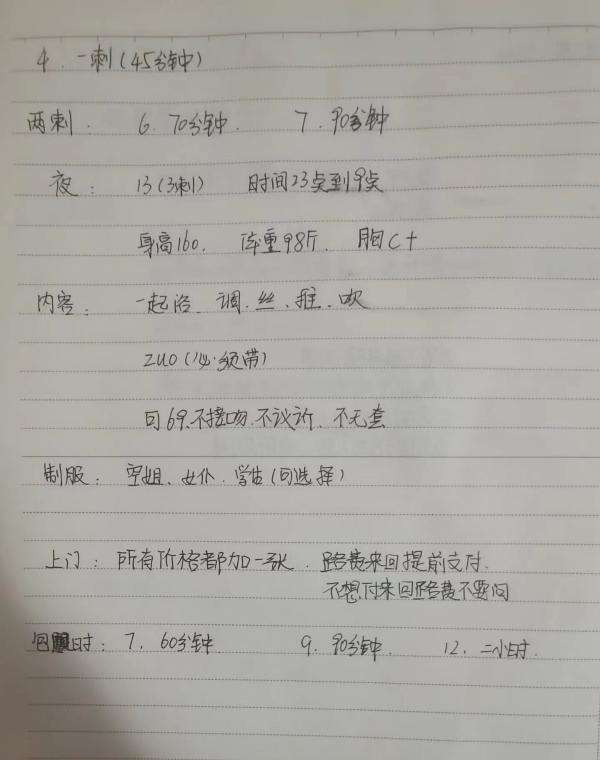 4. 一刺(45分钟)
两刺. 6. 70分钟. 7. 90分钟
夜: 13(3刺) 时间23点到9点
身高160. 体重98斤. 胸C+
内容: 一起浴、调.丝、推.吹
zuo(必须带)
可69.不接吻.不议价.不无套
制服: 空姐、女仆.学生(可选择)
上门: 所有价格都加一张. 路费来回提前支付.
不想付来回路费不要问
时: 7. 60分钟. 9. 90分钟. 12. 二小时.